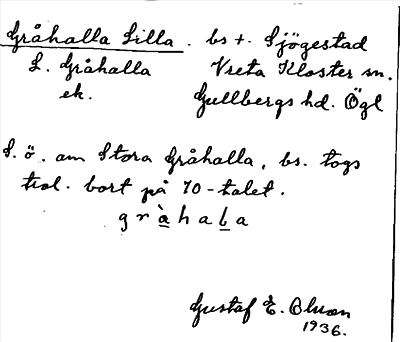 Gråhalla Lilla. bs t. Sjögestad
L. Gråhalla Vreta Kloster sn.
ek. Gullbergs hd. Ögl
S. ö. om Stora Gråhalla, bs. togs
trol. bort på 70-talet.
g r å̀ h a l̲ a
Gustaf E. Olsson
1936.